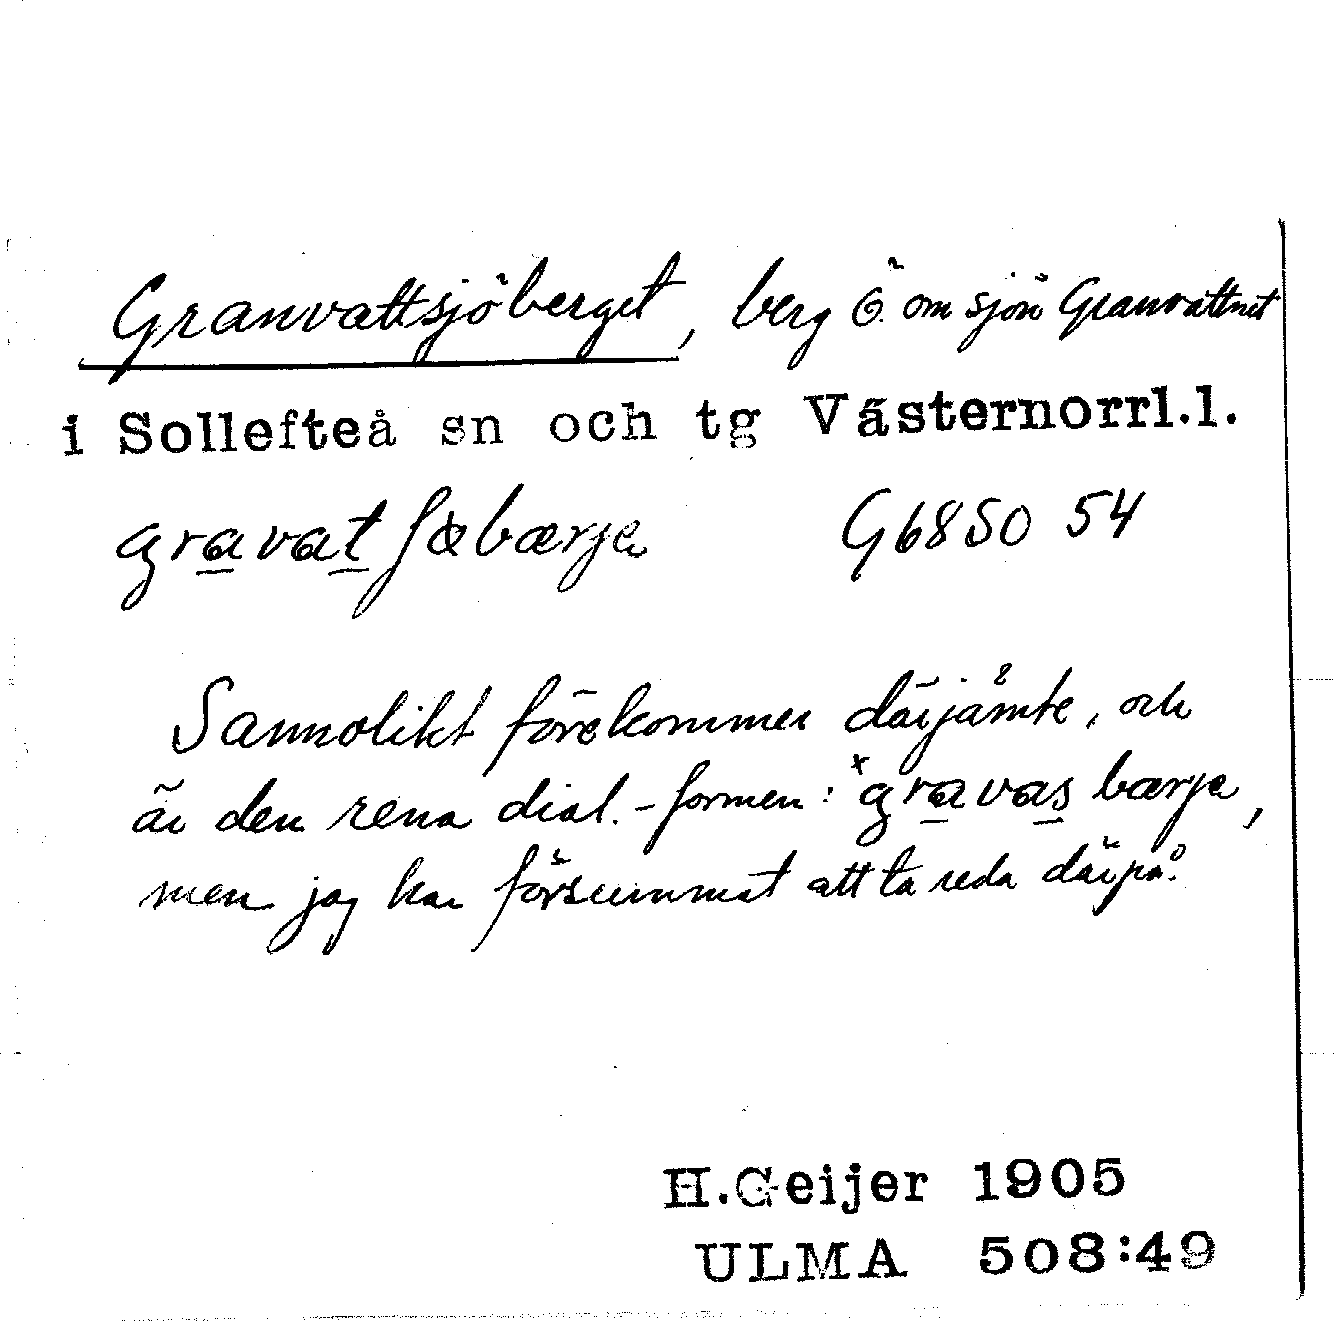 Granvattsjöberget, berg Ö. om sjön Granvattnet
i Sollefteå sn och tg Västernorrl.l.
gravatʃøbærjɐ G6850 54
Sannolikt förekommer därjämte, och
är den rena dial.-formen: *gravasbærjɐ,
men jag har försummat att ta reda därpå.
H.Geijer 1905
ULMA 508:49